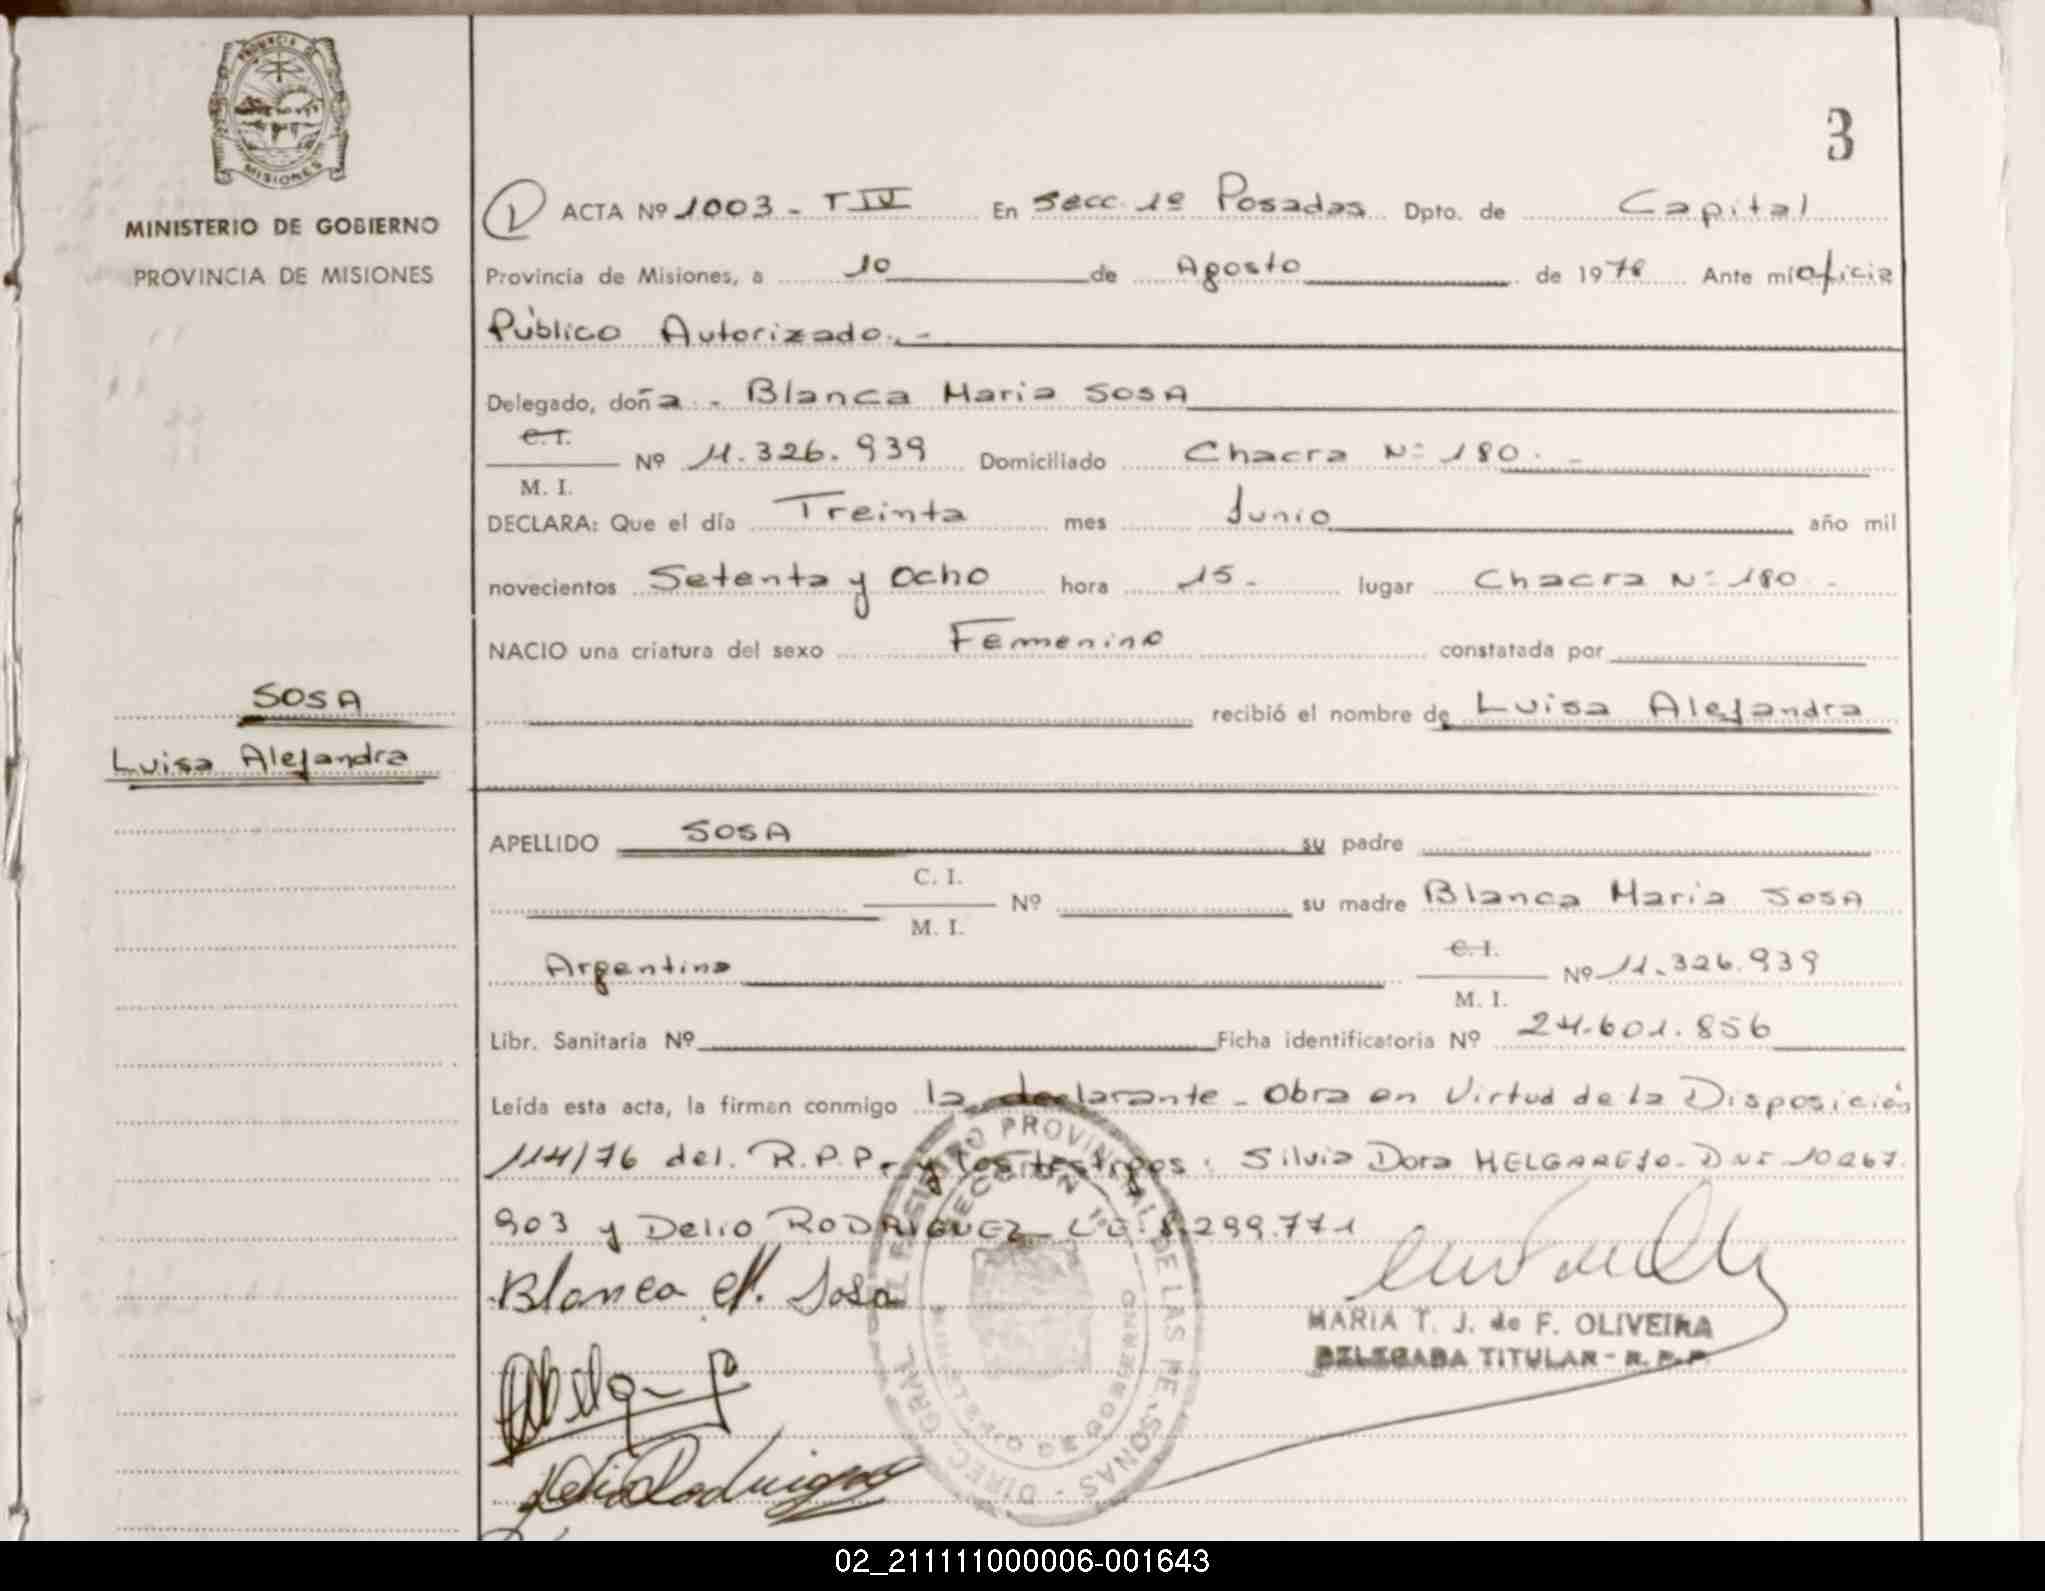 PROVINCIA DE
MISIONES
MINISTERIO DE GOBIERNO
PROVINCIA DE MISIONES
SOSA
Luisa Alejandra
3
1 ACTA Nº 1003 - T IV En Secc. 1º Posadas Dpto. de Capital
Provincia de Misiones, a 10 de Agosto de 1978 Ante mí oficia
Público Autorizado.-
Delegado, doña - Blanca Maria SOSA
C.I.
Nº 11.326.939 Domiciliado Chacra Nº 180.-
M. I.
DECLARA: Que el día Treinta mes Junio año mil
novecientos Setenta y Ocho hora 15- lugar Chacra Nº 180.-
NACIO una criatura del sexo Femenino constatada por
recibió el nombre de Luisa Alejandra
APELLIDO SOSA su padre
C. I.
Nº su madre Blanca Maria SOSA
M. I.
Argentina C.I. Nº 11.326.939
M. I.
Libr. Sanitaria Nº Ficha identificatoria Nº 24.601.856
Leída esta acta, la firman conmigo la declarante - Obra en Virtud de la Disposición
114/76 del. R.P.P. y los testigos: Silvia Dora MELGAREJO - DNI 10267.
903 y Delio RODRIGUEZ - LE. 8.299.771
Blanca M. Sosa
Delio Rodriguez
DIREC. GRAL. DEL REGISTRO PROVINCIAL DE LAS PERSONAS -
SECCION 1º
MINISTERIO DE GOBIERNO
MARIA T. J. de F. OLIVEIRA
DELEGADA TITULAR - R. P. P.
02_211111000006-001643